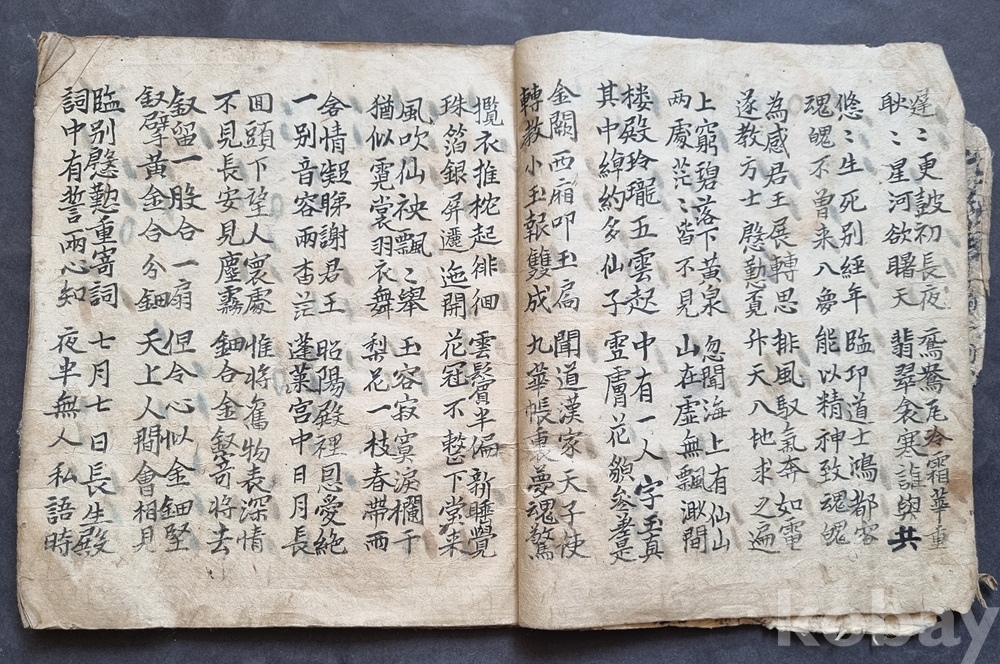 遲〻更皷初長夜
耿〻星河欲曙天
鴛鴦瓦冷霜華重
翡翠衾寒誰與共
悠〻生死别經年
魂魄不曾来入夢
臨邛道士鴻都客
能以精神致魂魄
為感君王展轉思
遂教方士慇懃覓
排風馭氣奔如電
升天入地求之遍
上窮碧落下黄泉
兩處茫〻皆不見
忽聞海上有仙山
山在虛無飄渺間
楼殿玲瓏五雲起
其中綽約多仙子
中有一人字玉真
雪膚花貌参差是
金闕西廂叩玉扃
轉教小玉報雙成
聞道漢家天子使
九華帳裏夢魂驚
攬衣推枕起徘徊
珠箔銀屏邐迤開
雲鬢半偏新睡覺
花冠不整下堂来
風吹仙袂飄〻舉
猶似霓裳羽衣舞
玉容寂寞淚欄干
梨花一枝春帶雨
含情凝睇謝君王
一别音容兩杳茫
昭陽殿裡恩愛絶
蓬萊宮中日月長
回頭下望人寰處
不見長安見塵霧
惟將舊物表深情
鈿合金釵寄將去
釵留一股合一扇
釵擘黄金合分鈿
但令心似金鈿堅
天上人間會相見
臨别慇懃重寄詞
詞中有誓兩心知
七月七日長生殿
夜半無人私語時
kobay